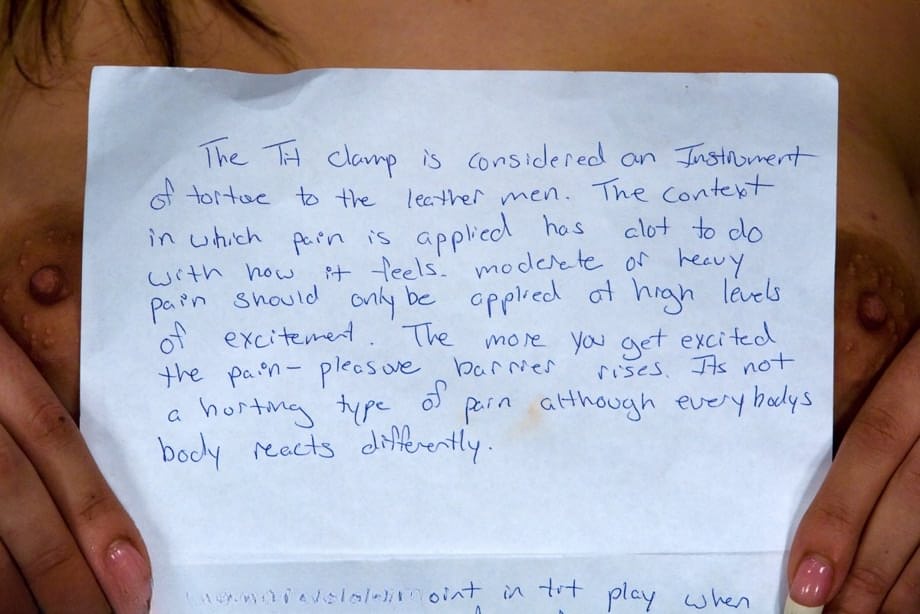 The Tit clamp is considered an Instrument
of tortue to the leather men. The context
in which pain is applied has alot to do
with how it feels. moderate or heavy
pain should only be applied at high levels
of excitement. The more you get excited
the pain-pleasure barrier rises. Its not
a hurting type of pain although everybodys
body reacts differently.
oint in tit play when